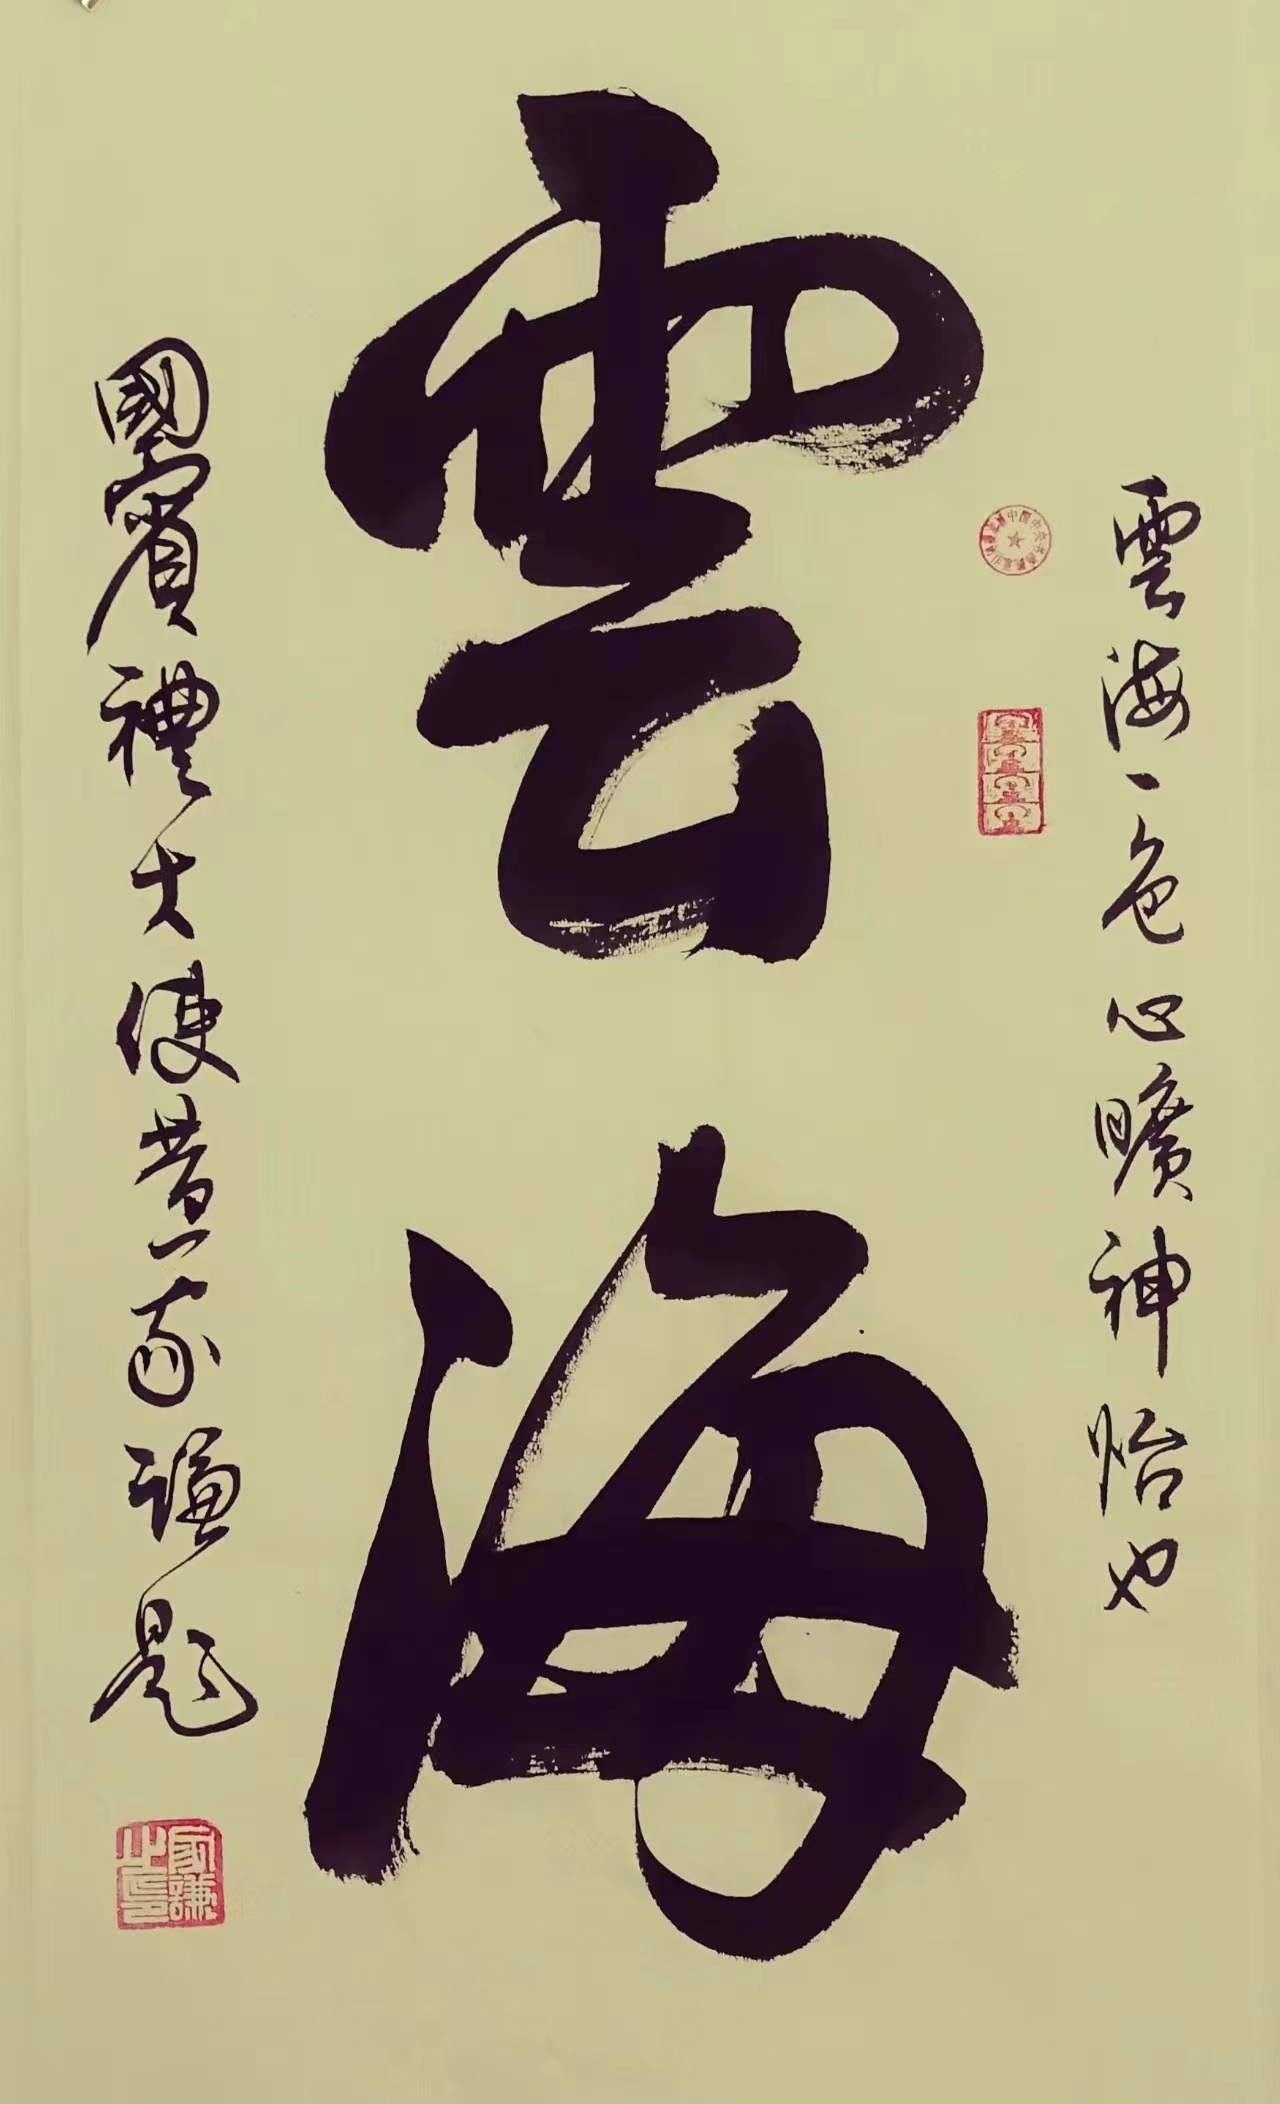 雲海一色心曠神怡也
雲海
國賓禮大使黃家謙題
家謙之印